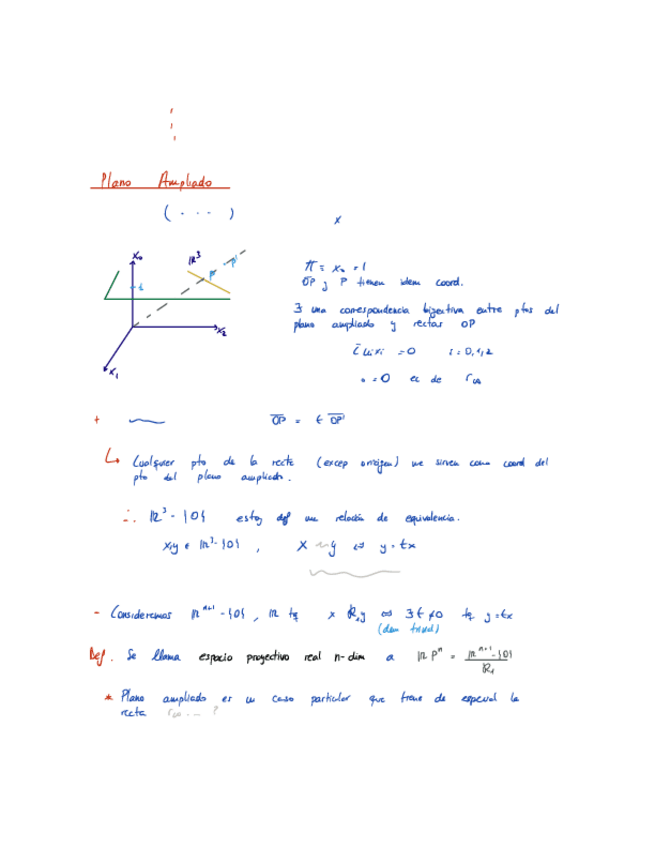 Plano Ampliado
( . . . )
x
x₀
1
ℝ³
P
P'
x₂
x₁
π ≡ x₀ = 1
OP y P tienen idem coord.
∃ una correspondencia biyectiva entre ptos del
plano ampliado y rectas OP
Σ uᵢxᵢ = 0 i = 0,1,2
= 0 ec de r∞
+ OP = t OP'
↳ Cualquier pto de la recta (excep origen) me sirven como coord del
pto del plano ampliado.
∴ ℝ³ - {0} estoy def una relación de equivalencia.
x,y ∈ ℝ³ - {0} , x ~ y ⇔ y = tx
- Consideremos ℝⁿ⁺¹ - {0} , ℝ₁ tq x ℝ₁ y ⇔ ∃ t ≠ 0 tq y = tx
(dem trivial)
Def. Se llama espacio proyectivo real n-dim a ℝPⁿ = ℝⁿ⁺¹ - {0} / ℝ₁
* Plano ampliado es un caso particular que tiene de especial la
recta r∞ ... ?